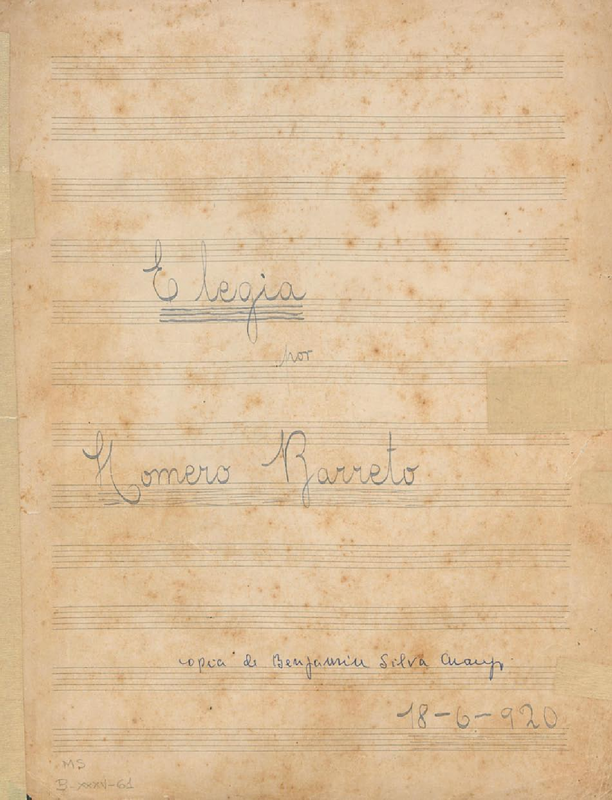 Elegia
por
Homero Barreto
copia de Benjamin Silva Araujo
18-6-920
MS
B-XXXIV-61